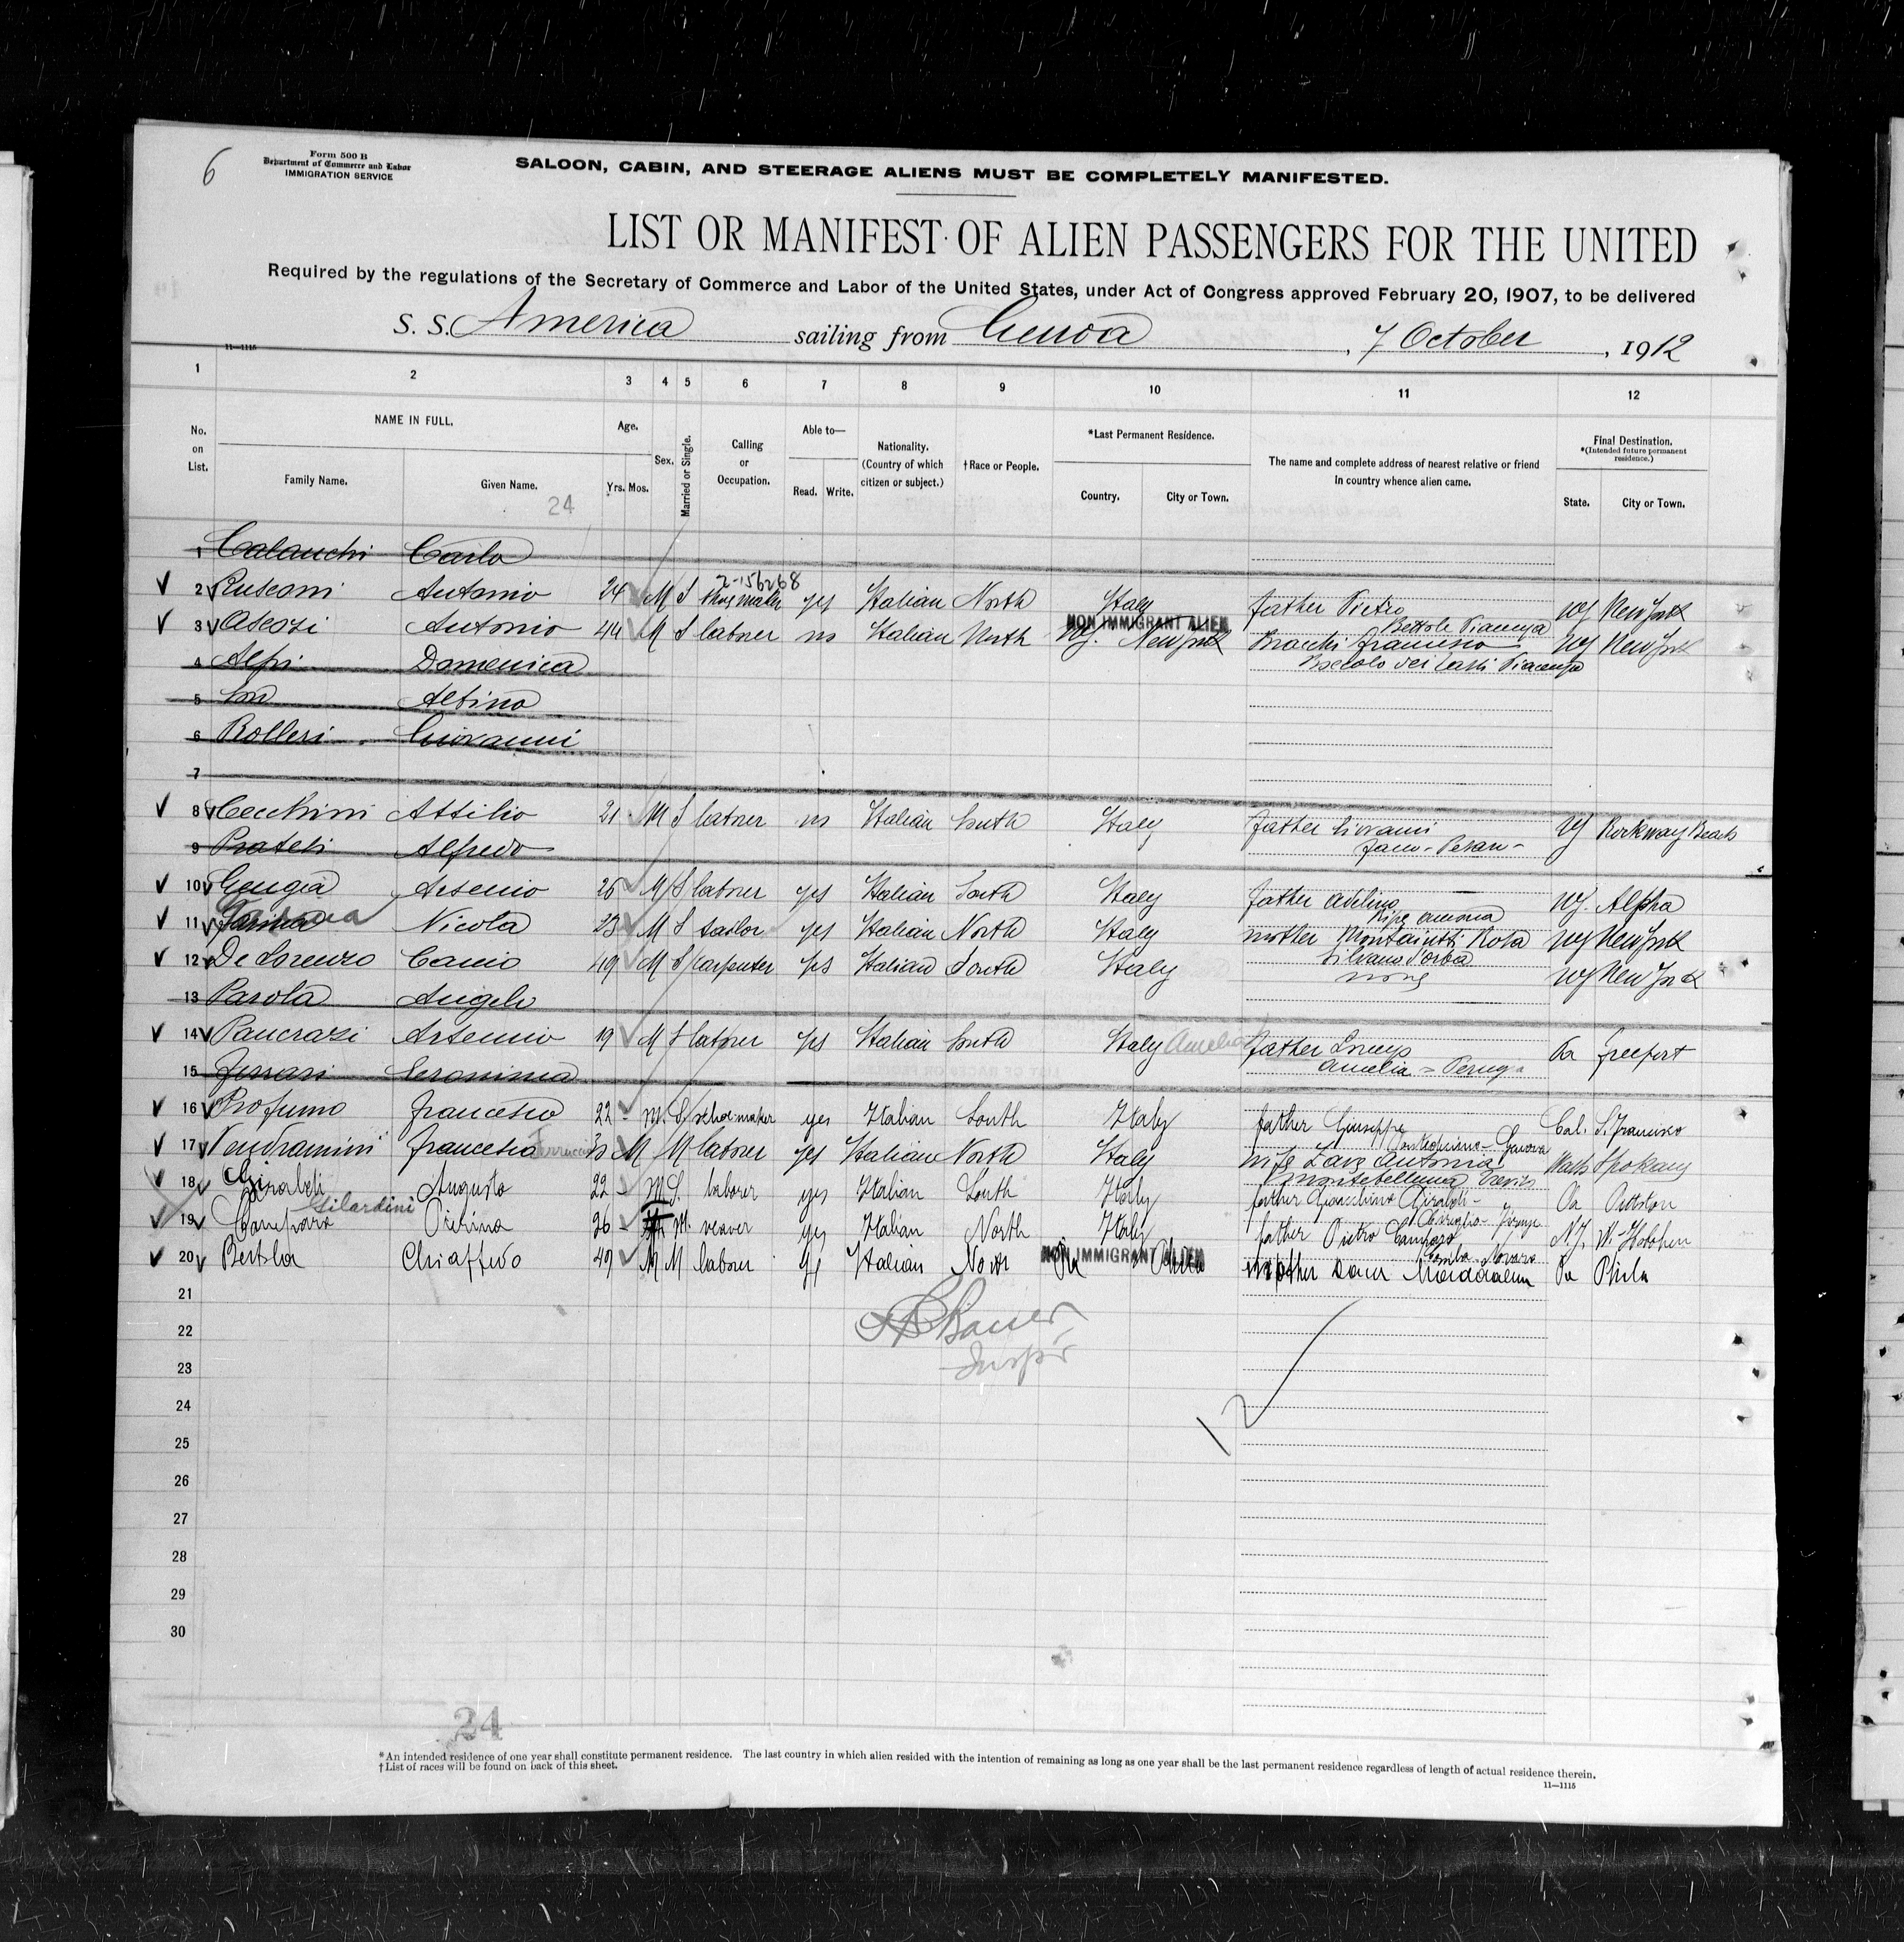 6
Form 500 B
Department of Commerce and Labor
IMMIGRATION SERVICE
SALOON, CABIN, AND STEERAGE ALIENS MUST BE COMPLETELY MANIFESTED.
LIST OR MANIFEST OF ALIEN PASSENGERS FOR THE UNITED
Required by the regulations of the Secretary of Commerce and Labor of the United States, under Act of Congress approved February 20, 1907, to be delivered
S. S. America sailing from Genoa, 7 October, 1912
11—1115
1 2 3 4 5 6 7 8 9 10 11 12
No. on List.
NAME IN FULL.
Family Name. Given Name.
24
Age.
Yrs. Mos.
Sex.
Married or Single.
Calling or Occupation.
Able to—
Read. Write.
Nationality. (Country of which citizen or subject.)
†Race or People.
*Last Permanent Residence.
Country. City or Town.
The name and complete address of nearest relative or friend in country whence alien came.
Final Destination.
*(Intended future permanent residence.)
State. City or Town.
1 Calanchi Carlo
2-156268
2 Rusconi Antonio 24 M S shoemaker yes Italian North Italy father Pietro NY New York
NON IMMIGRANT ALIEN
Bettola Piacenza
3 Antonio 44 M S laborer no Italian North NY. New York Bracchi Francesco NY New York
Piacenza
4 Alpi Domenica
5 Albino
6 Rolleri Giovanni
7
8 Cecchini Attilio 21 M S laborer no Italian South Italy father Giovanni NY Rockway Beach
Fano - Pesaro -
9 Alfredo
10 Gengia Arsenio 25 M S laborer yes Italian South Italy father Adelino NY. Alpha
Ripe Ancona
11 Nicola 23 M S tailor yes Italian North Italy mother Rosa NY New York
Silvano d'Orba
12 De Lorenzo Canio 49 M S carpenter yes Italian South Italy none NY New York
13 Parola Angelo
14 Pancrazi Artemio 19 M S laborer yes Italian South Italy Amelia father Pa Freeport
Amelia = Perugia
15 Ferrari Geronima
16 Profumo Francesco 22 M. S. schoemaker yes Italian South Italy father Giuseppe Cal. S. Francisco
Genova
17 Vendramini Francesco 30 M M laborer yes Italian North Italy wife Antonia Wash Spokane
Montebelluna Treviso
18 Giraldi Augusto 22 M S. laborer yes Italian South Italy father Gioacchino Giraldi - Pa Pittston
Gilardini
Firenze
19 Campara Pierina 26 M. weaver yes Italian North Italy father Pietro Campara N.J. W. Hoboken
Novara
NON IMMIGRANT ALIEN
20 Bertola Chiaffredo 49 M M laborer yes Italian North Pa Phila mother Maddalena Pa Phila
Bauer
Inspr
12
21
22
23
24
25
26
27
28
29
30
24
*An intended residence of one year shall constitute permanent residence. The last country in which alien resided with the intention of remaining as long as one year shall be the last permanent residence regardless of length of actual residence therein.
†List of races will be found on back of this sheet.
11—1115